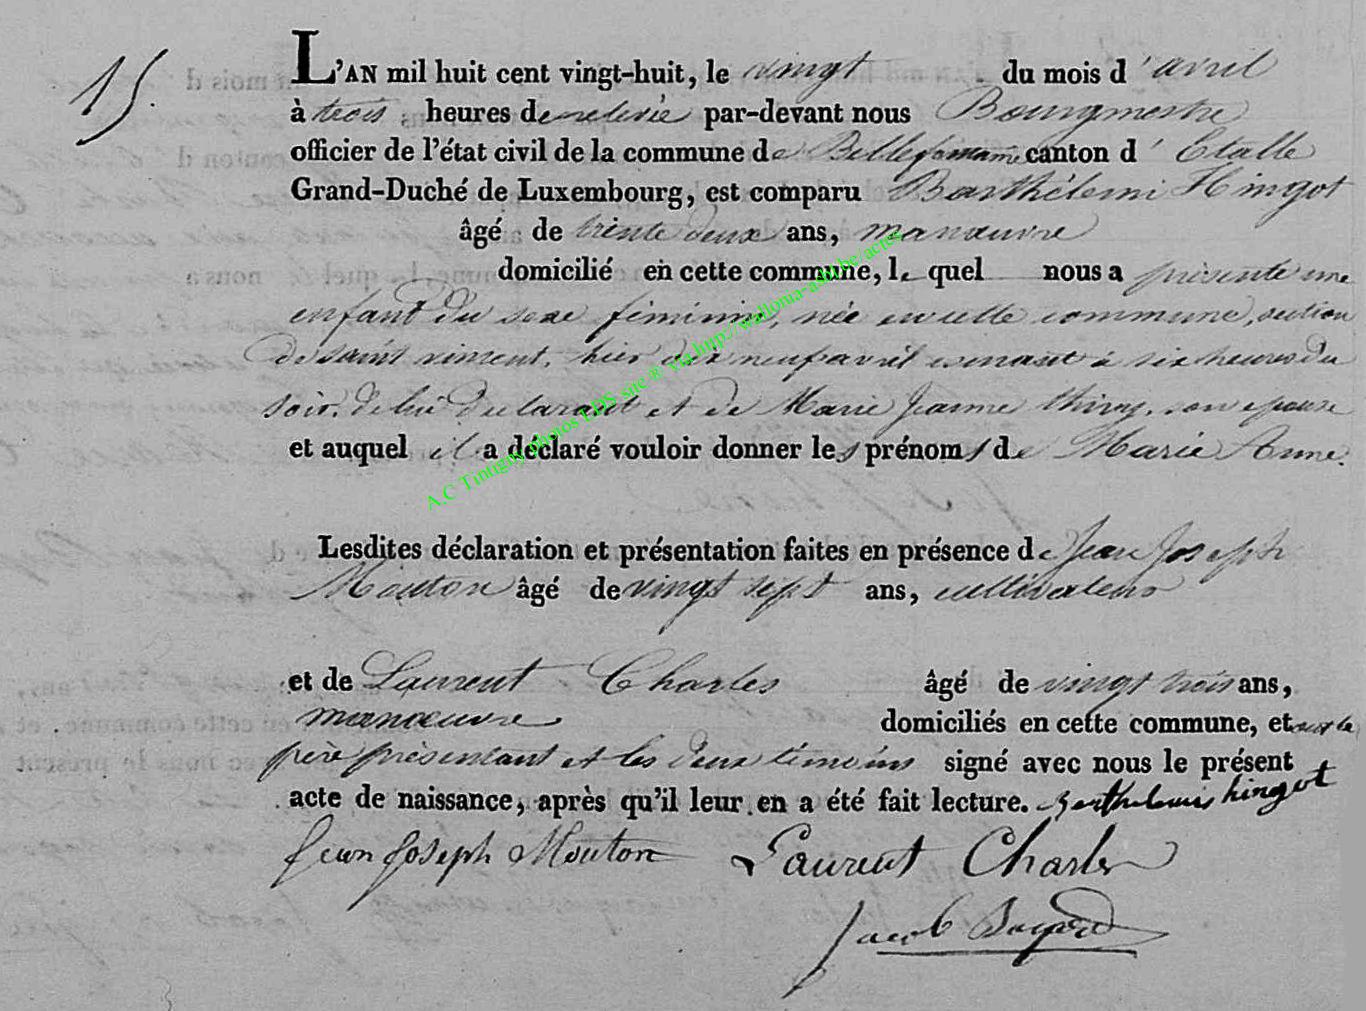 15.
L'AN mil huit cent vingt-huit, le vingt du mois d'avril
à trois heures de relevée par-devant nous Bourgmestre
officier de l'état civil de la commune de Bellefontaine canton d'Etalle
Grand-Duché de Luxembourg, est comparu Barthélemi Hingot
âgé de trente deux ans, manœuvre
domicilié en cette commune, le quel nous a présenté une
enfant du sexe féminin, née en cette commune, section
de saint vincent, hier dix neuf avril courant à six heures du
soir, de lui declarant et de Marie Jeanne thiry, son epouse
et auquel il a déclaré vouloir donner les prénoms de Marie Anne.
Lesdites déclaration et présentation faites en présence de Jean Joseph
Mouton âgé de vingt sept ans, cultivateur
et de Laurent Charles âgé de vingt trois ans,
manœuvre domiciliés en cette commune, et ont le
père présentant et les deux témoins signé avec nous le présent
acte de naissance, après qu'il leur en a été fait lecture. Barthelemis hingot
Jean Joseph Mouton Laurent Charles
Jacob
A.C Tintigny photos LDS site ® via http://wallonia-asbl.be/actes